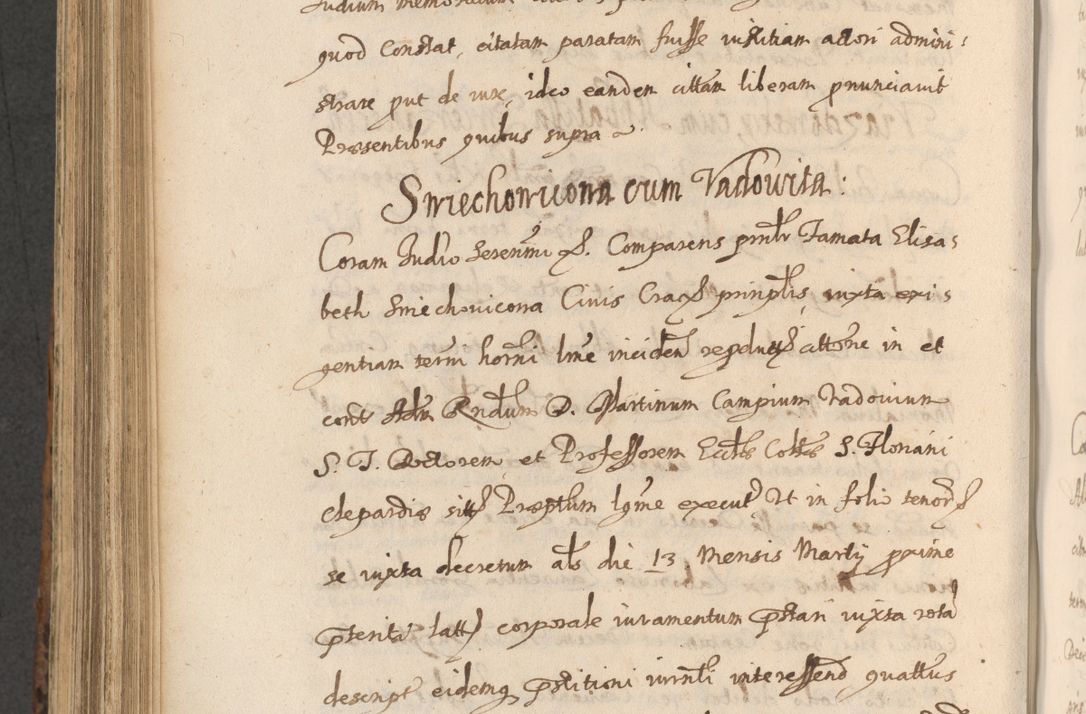 quod Constat, citatam paratam fuisse iustitiam actori admini:
strare put de iure, ideo eandem cittam liberam pnunciavit
Præsentibus quibus supra
Smiechowicona cum Vadovita:
Coram Iudio Serenmi &. Comparens prnlr Famata Elisa:
beth Smiechovicona Civis Crac& prinplis, iuxta exi:
gentiam termi horni lme inciden reproduct attone in et
cont Adm Rndum D. Martinum Campium Vadovium
S. T. Doctorem et Professorem Eccts Colts S. Floriani
Clepardiæ sitt Præptum lgme execut Ut in folio tenor
se iuxta decretum als die 13 Mensis Martij proxime
pterite latt corporale iuramentum pstari iuxta rota
descript eidemq pstitioni iurnti interessend quattus